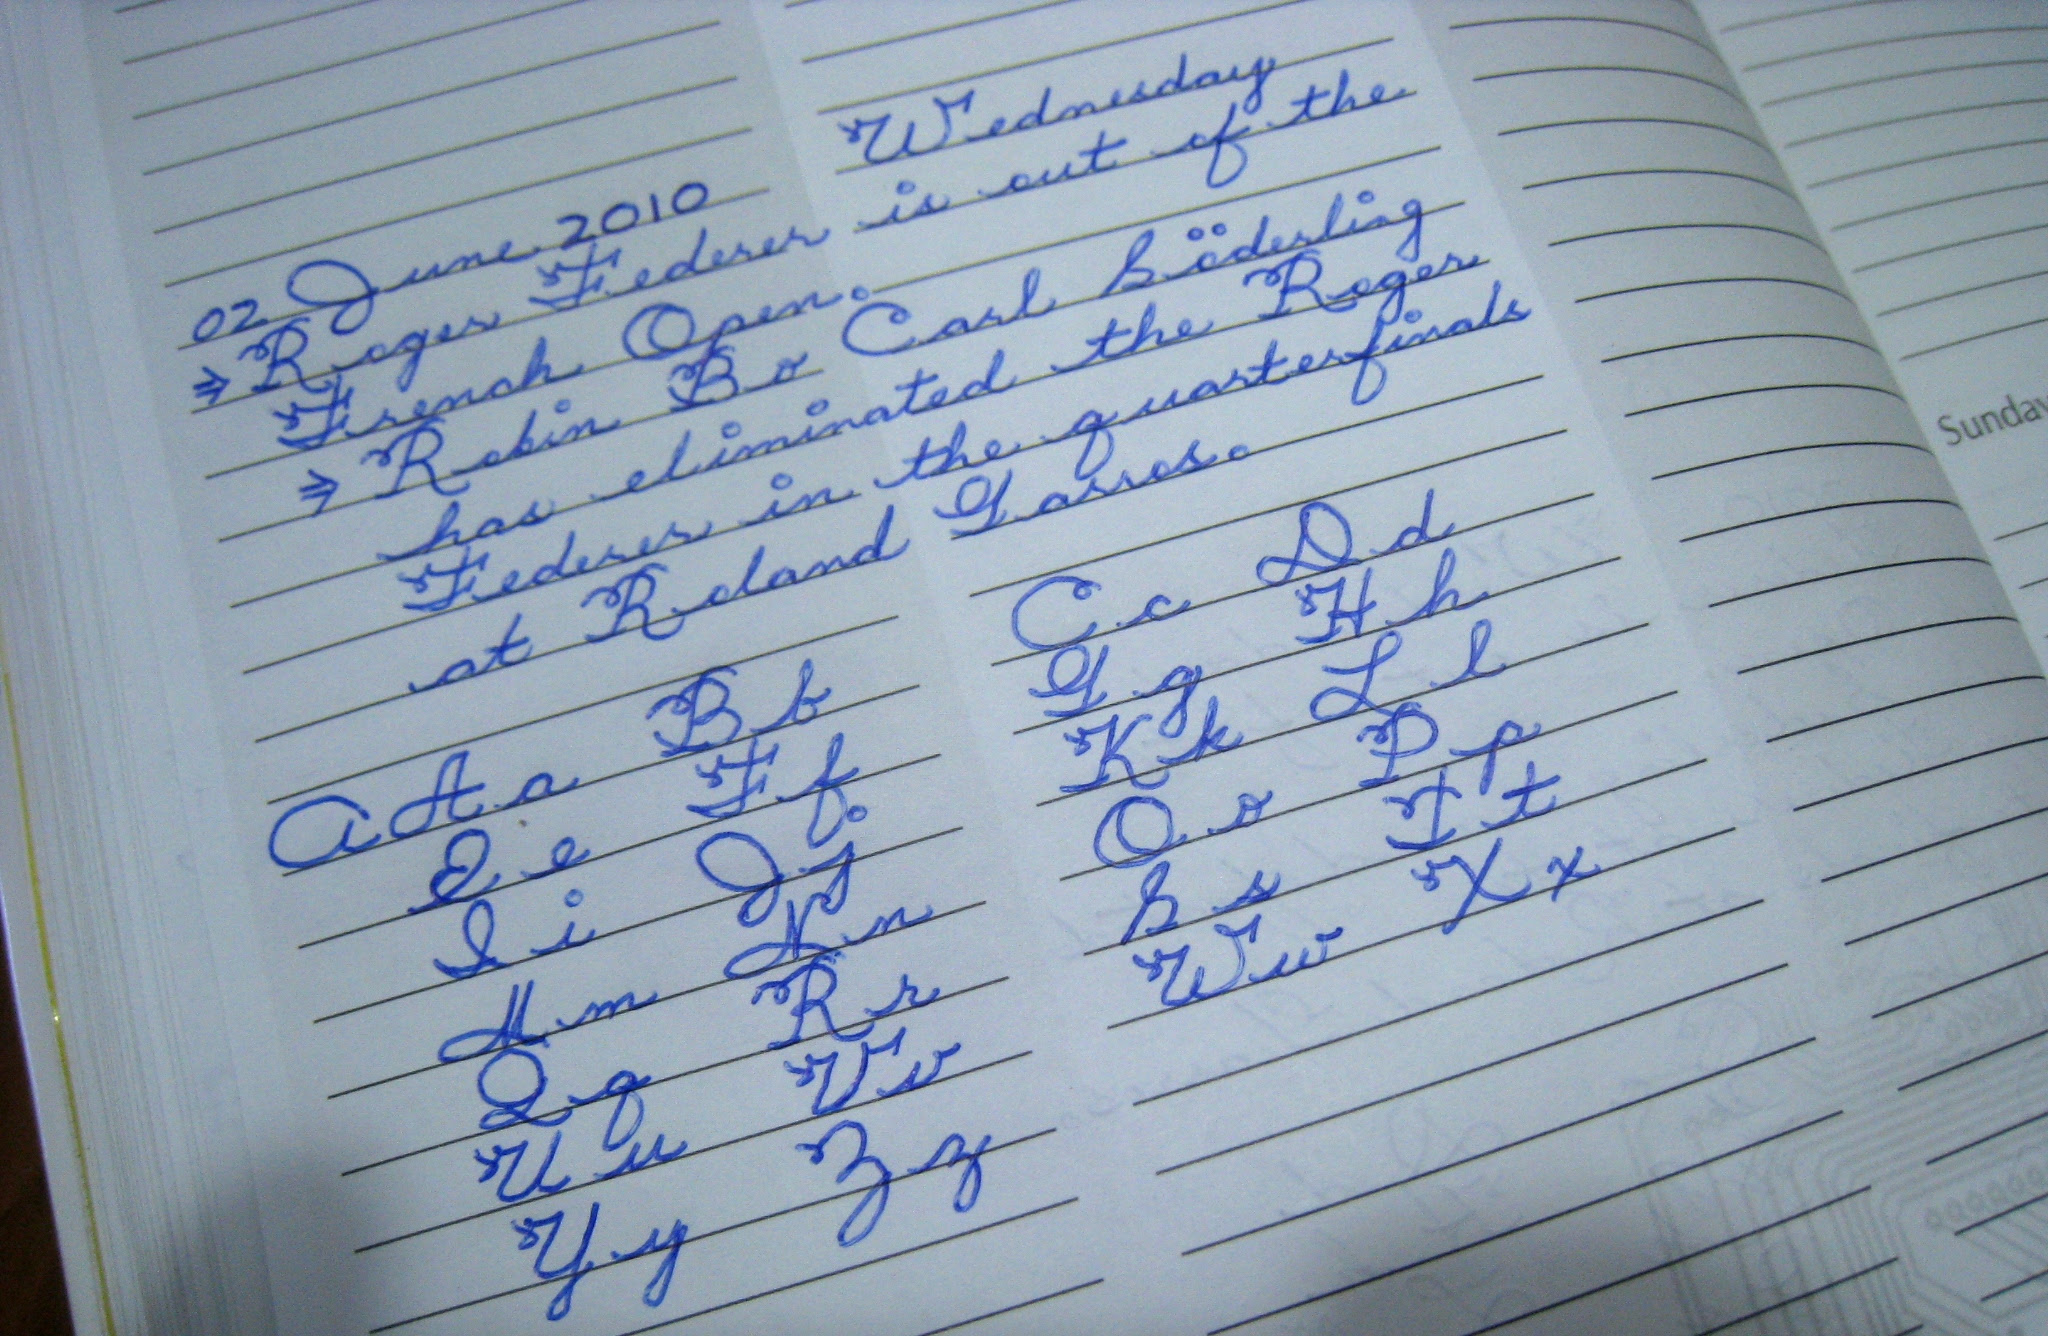 02 June 2010 Wednesday
⇒ Roger Federer is out of the
French Open.
⇒ Robin Bo Carl Söderling
has eliminated the Roger
Federer in the quarterfinals
at Roland Garros.
A A a B b C c D d
E e F f G g H h
I i J j K k L l
M m N n O o P p
Q q R r S s T t
U u V v W w X x
Y y Z z
Sunday